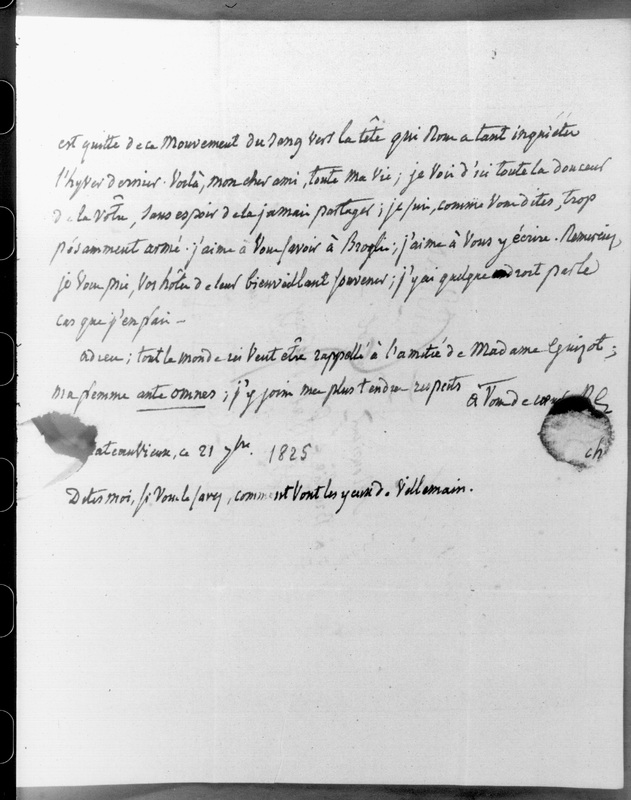 est quitte de ce mouvement du sang vers la tête qui vous a tant inquiétée
l'hyver dernier. Voilà, mon cher ami, toute ma vie; je vois d'ici toute la douceur
de la vôtre, sans espoir de la jamais partager; je suis, comme vous dites, trop
pésamment armé. j'aime à vous savoir à Broglie; j'aime à vous y écrire. Remerciez,
je vous prie, vos hôtes de leur bienveillant souvenir; j'y ai quelque droit par le
cas que j'en fais –
adieu; tout le monde ici veut être rappellé à l'amitié de Madame Guizot;
ma femme ante omnes; j'y joins mes plus tendres respects
à vous de cœur
ateauvieux, ce 21 7bre 1825
ch
Dites moi, si vous le savez, comment vont les yeux de Villemain.